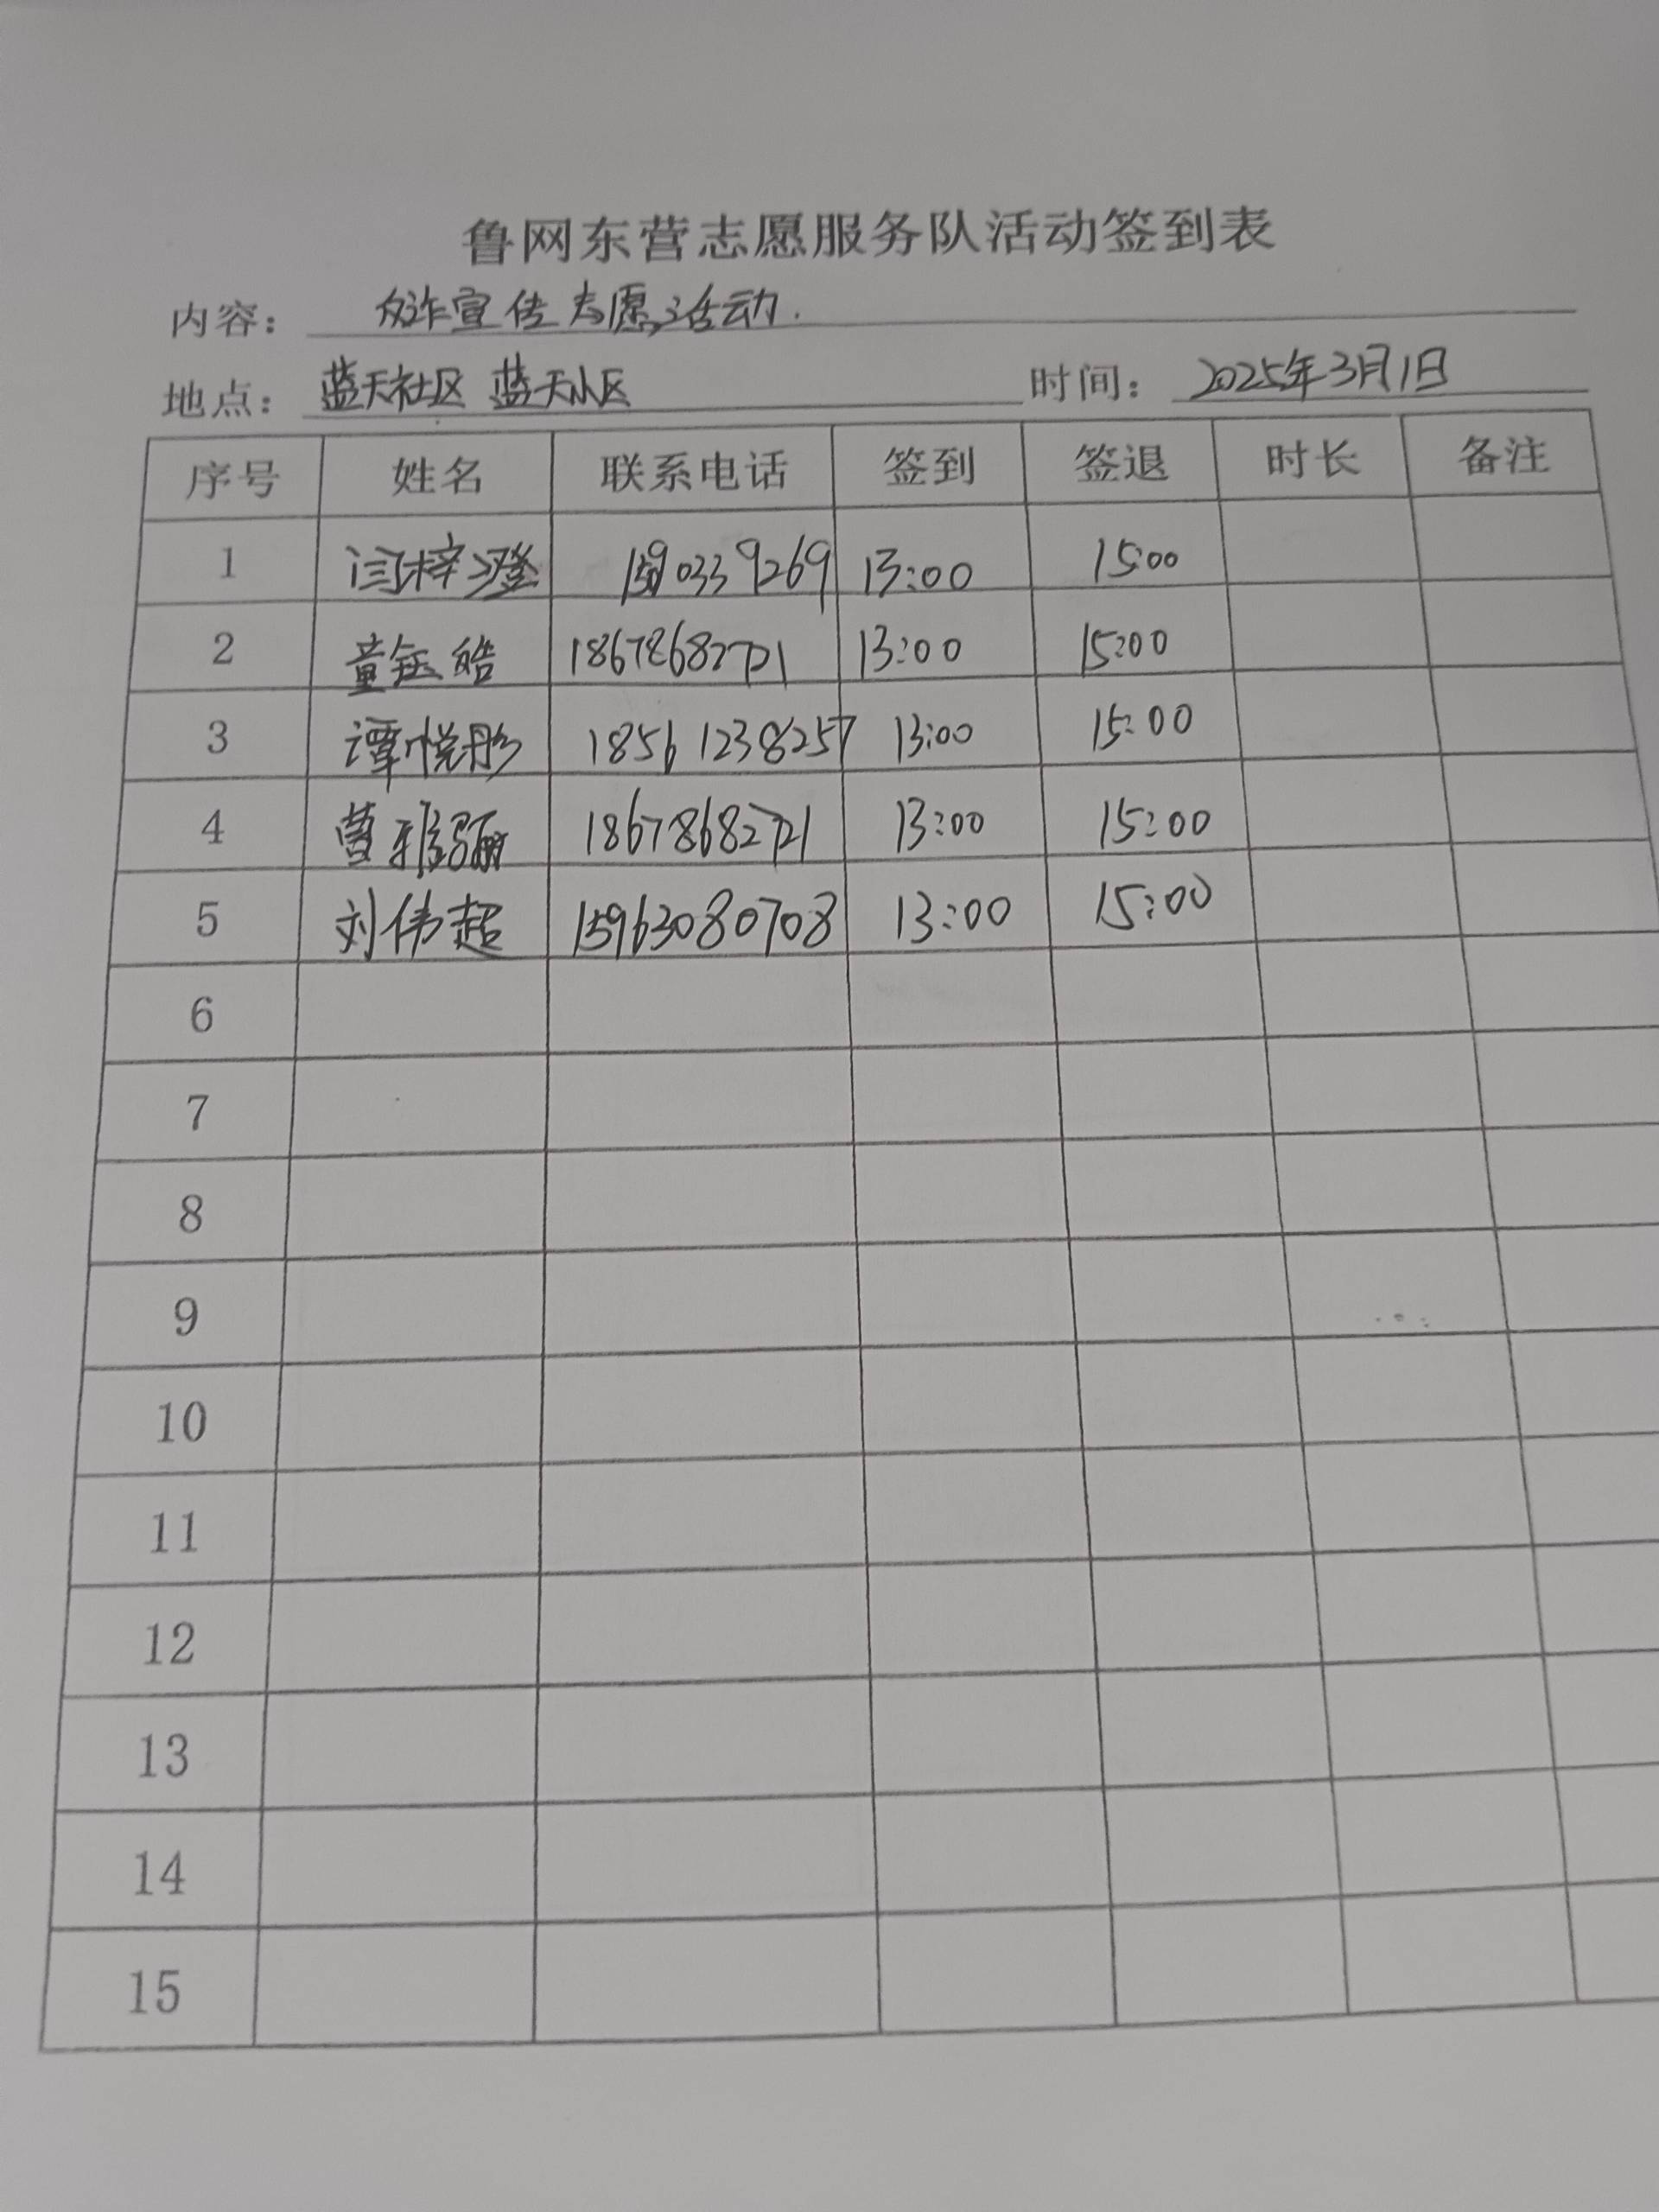 鲁网东营志愿服务队活动签到表
内容: 反诈宣传志愿活动.
地点: 蓝天社区 蓝天小区 时间: 2025年3月1日
序号 姓名 联系电话 签到 签退 时长 备注
1 闫梓澄 13:00 15:00
2 童钰皓 18678682721 13:00 15:00
3 谭悦彤 18561238257 13:00 15:00
4 曹雅骊 18678682721 13:00 15:00
5 刘伟超 15963080708 13:00 15:00
6
7
8
9
10
11
12
13
14
15